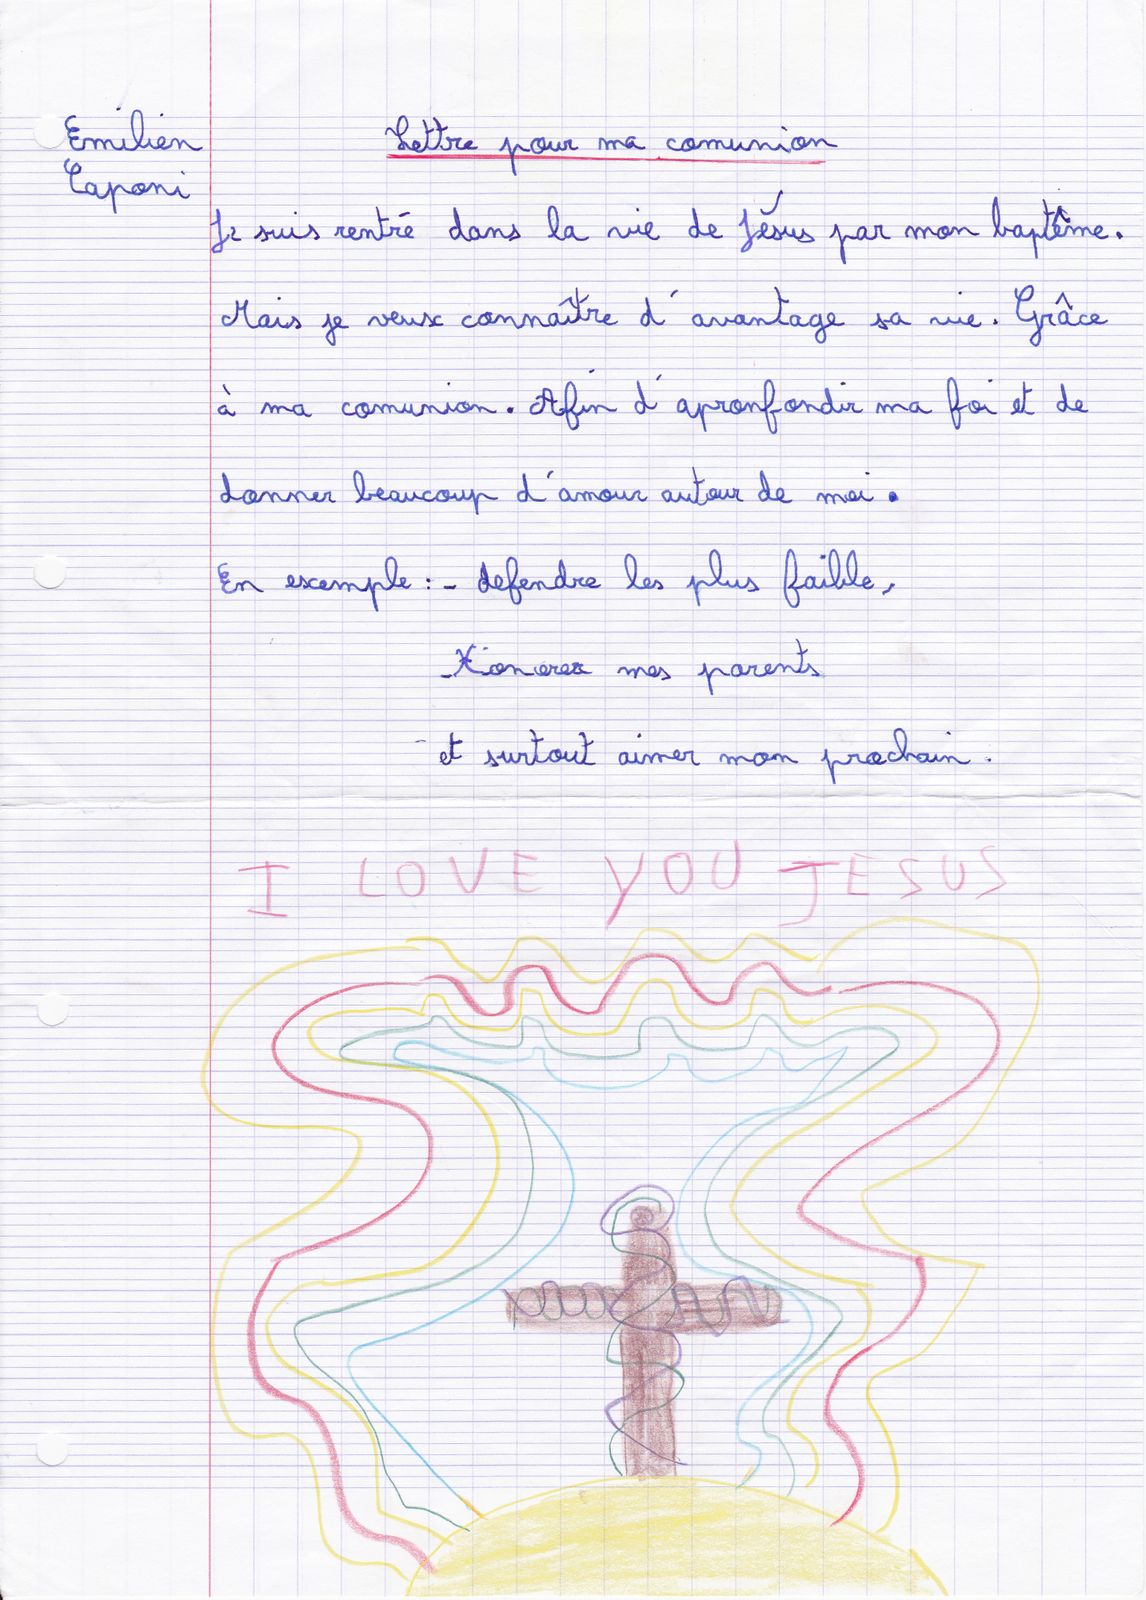 Emilien
Caponi
Lettre pour ma comunion
Je suis rentré dans la vie de Jésus par mon baptême.
Mais je veux connaître d'avantage sa vie. Grâce
à ma comunion. Afin d'apronfondir ma foi et de
donner beaucoup d'amour autour de moi.
En exemple : - defendre les plus faible,
- Honorer mes parents
et surtout aimer mon prochain.
I LOVE YOU JESUS